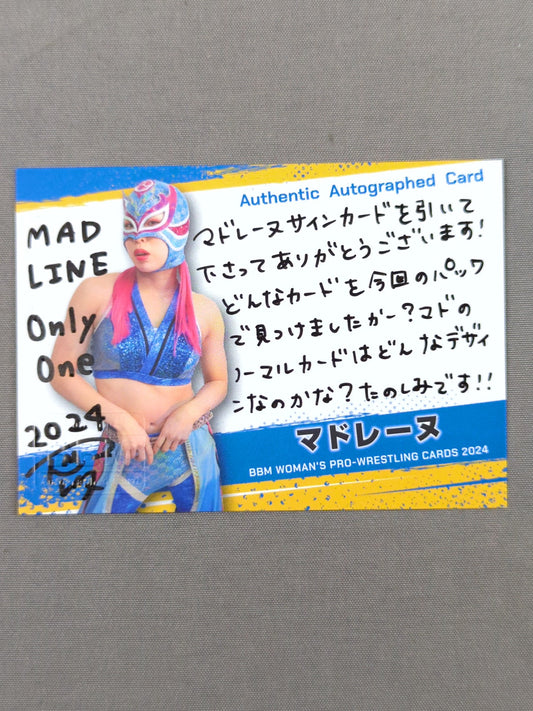 Authentic Autographed Card
MAD
LINE
Only
One
2024
マドレーヌサインカードを引いて
下さってありがとうございます!
どんなカードを今回のパック
で見つけましたかー?マドの
ノーマルカードはどんなデザイ
ンなのかな?たのしみです!!
マドレーヌ
BBM WOMAN'S PRO-WRESTLING CARDS 2024